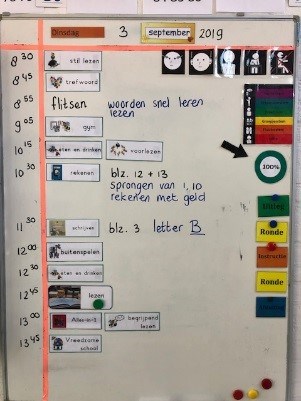 Dinsdag 3 september 2019
8 30 stil lezen
8 45 trefwoord
8 55 flitsen woorden snel leren
lezen
9 05 gym
10 15 eten en drinken voorlezen
10 30 rekenen blz. 12 + 13
100%
sprongen van 1, 10
rekenen met geld
11 30 schrijven blz. 3 letter B
Ronde
12 00 buitenspelen
Instructie
12 30 eten en drinken
Ronde
12 45 lezen
13 00 begrijpend
lezen
13 45 Vreedzame
school